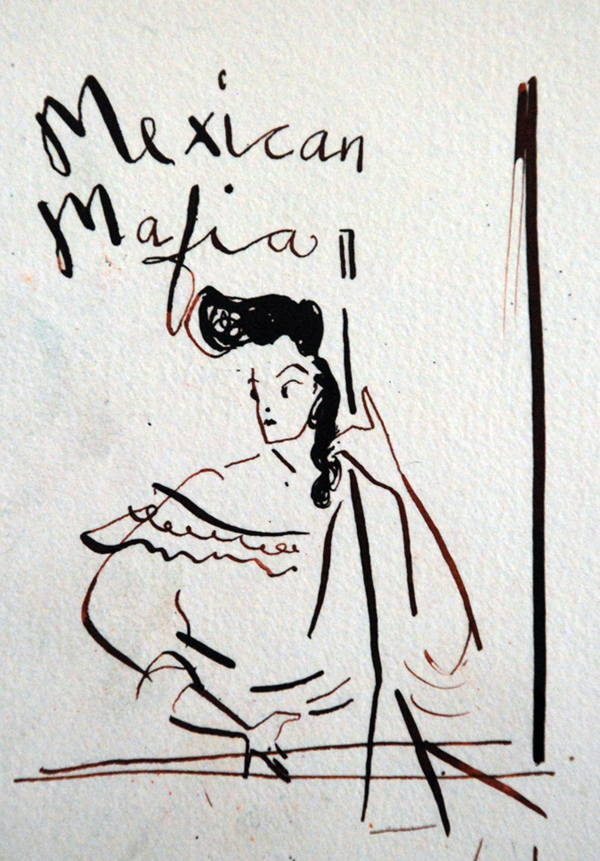 Mexican
Mafia